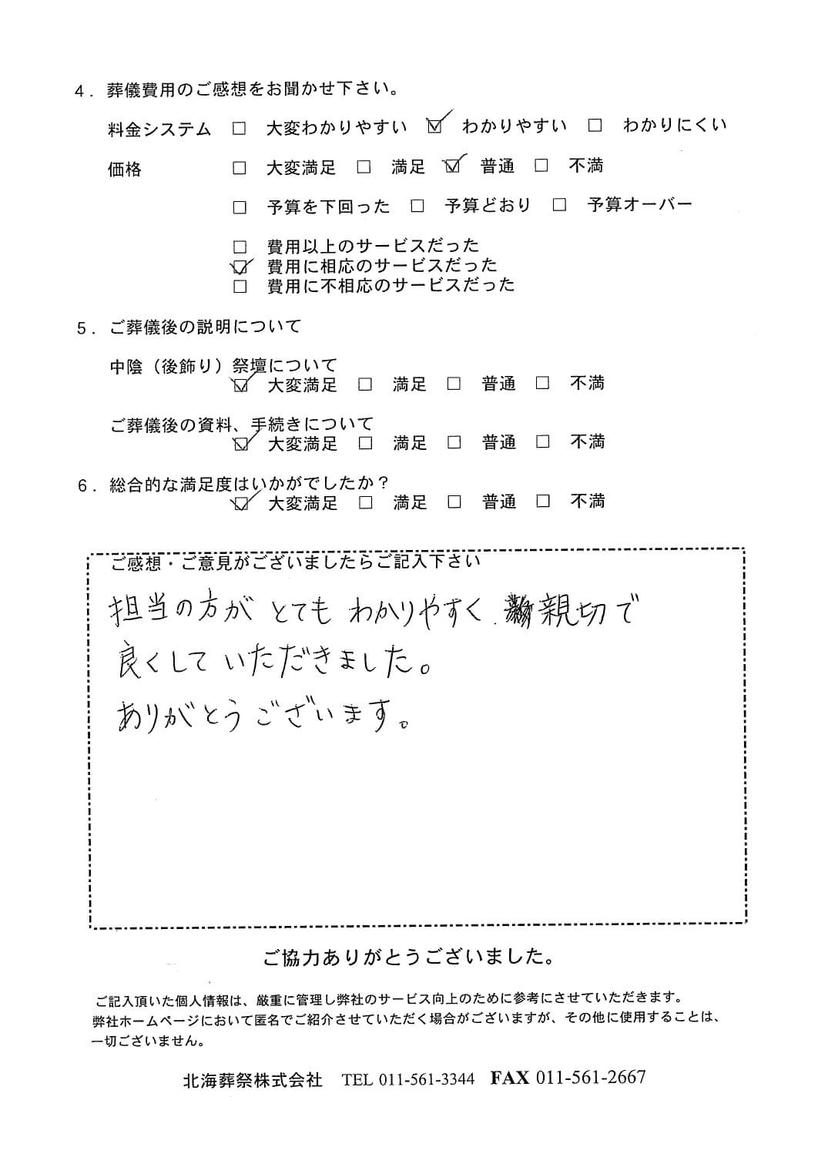 4．葬儀費用のご感想をお聞かせ下さい。
料金システム □ 大変わかりやすい ☑ わかりやすい □ わかりにくい
価格 □ 大変満足 □ 満足 ☑ 普通 □ 不満
□ 予算を下回った □ 予算どおり □ 予算オーバー
□ 費用以上のサービスだった
☑ 費用に相応のサービスだった
□ 費用に不相応のサービスだった
5．ご葬儀後の説明について
中陰（後飾り）祭壇について
☑ 大変満足 □ 満足 □ 普通 □ 不満
ご葬儀後の資料、手続きについて
☑ 大変満足 □ 満足 □ 普通 □ 不満
6．総合的な満足度はいかがでしたか？
☑ 大変満足 □ 満足 □ 普通 □ 不満
ご感想・ご意見がございましたらご記入下さい
担当の方が とても わかりやすく、親切で
良くして いただきました。
ありがとうございます。
ご協力ありがとうございました。
ご記入頂いた個人情報は、厳重に管理し弊社のサービス向上のために参考にさせていただきます。
弊社ホームページにおいて匿名でご紹介させていただく場合がございますが、その他に使用することは、
一切ございません。
北海葬祭株式会社 TEL 011-561-3344 FAX 011-561-2667